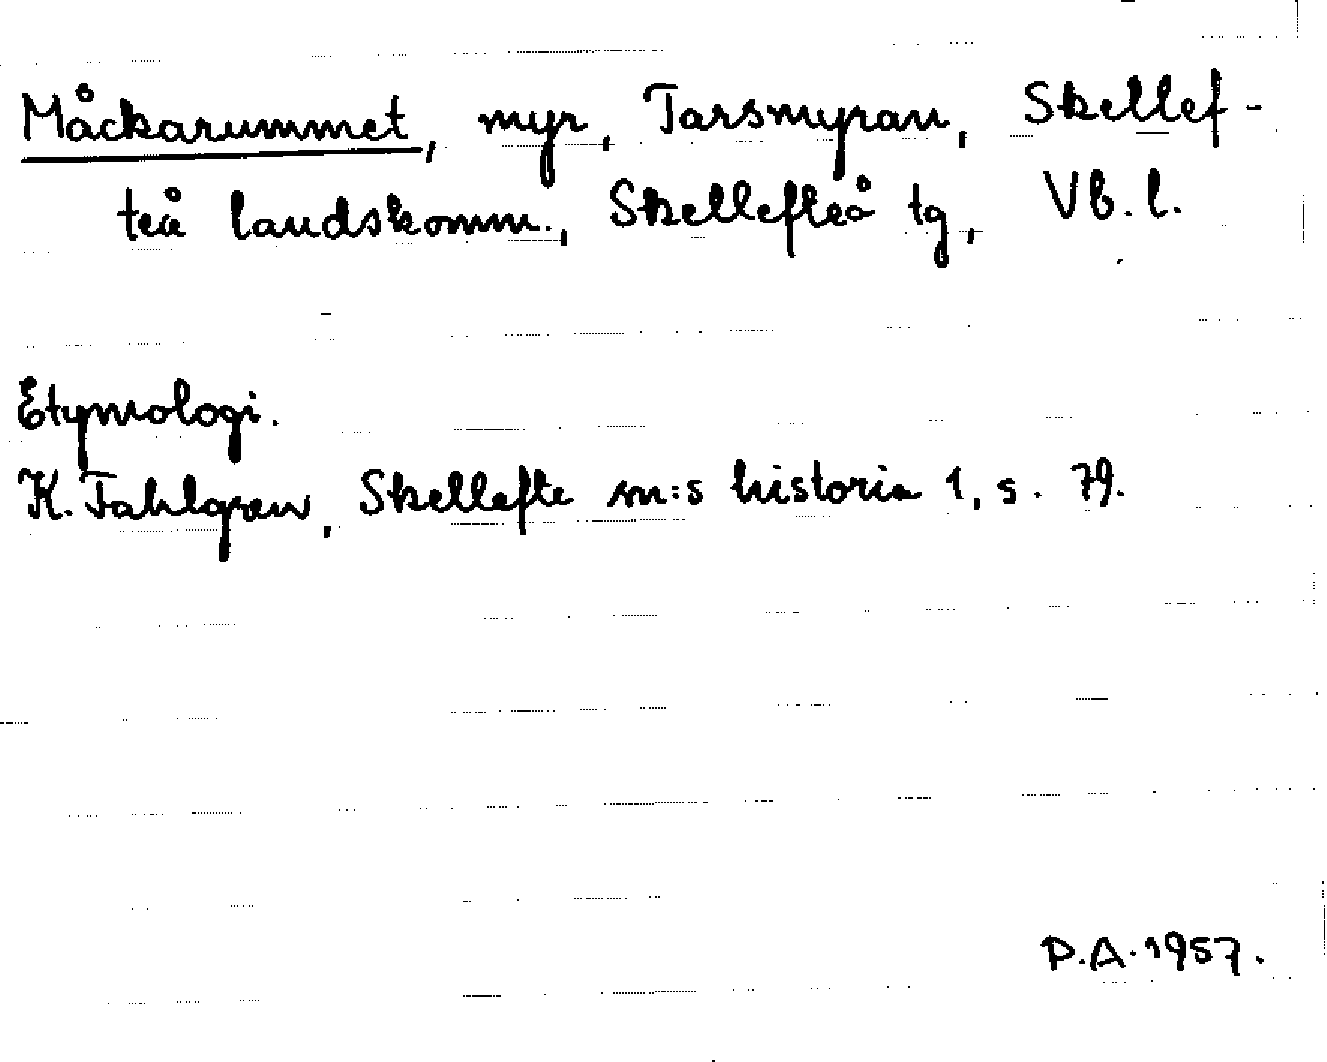 Måckarummet, myr, Tarsmyran, Skellef-
teå landskomm., Skellefteå tg, Vb. l.
Etymologi.
K. Fahlgren, Skellefte sn:s historia 1, s. 79.
P.A. 1957.